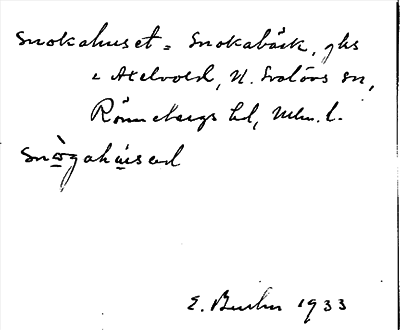 Snokahuset = Snokabäck, ghs
i Axelvold, N. Svalövs sn,
Rönnebergs hd, Mlm. l.
snògahúsed
E. 1933